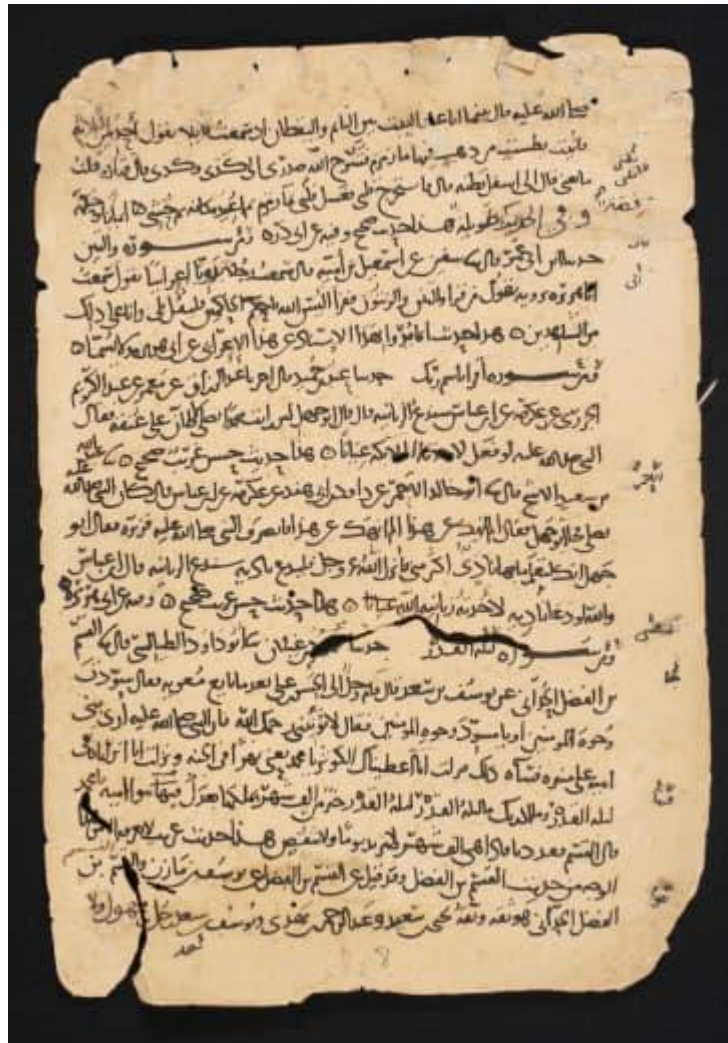 صلى الله عليه قال بينما انا عند البيت بين النائم واليقظان اذ سمعت قائلا يقول أحد بين الثلاثة
فاتيت بطست من ذهب فيها ماء زمزم فشرح الله صدري الى كذى وكذى قال قتادة قلت
ما يعني قال الى اسفل بطنه قال فاستخرج قلبي فغسل قلبي بماء زمزم ثم اعيد مكانه ثم حشي ايمانا وحكمة
و في الحديث قصة طويلة هذا حديث صحيح وفيه عن ابي ذر ومن سورة والتين
حدثنا ابن ابي عمر قال سفين عن اسمعيل بن امية قال سمعت رجلا بدويا اعرابيا يقول سمعت
ابا هريرة يرويه يقول من قرا والتين والزيتون فقرا اليس الله باحكم الحاكمين فليقل بلى وانا على ذلك
من الشاهدين هذا حديث انما يروا بهذا الاسناد عن هذا الاعرابي عن ابي هريرة ولا يسما
ومن سورة أقرا باسم ربك حدثنا عبد بن حميد قال اخبرنا عبد الرزاق عن معمر عن عبد الكريم
الجزري عن عكرمة عن ابن عباس سندع الزبانية قال قال ابو جهل لئن رايت محمدا يصلي لاطأن على عنقه فقال
النبي صلى الله عليه لو فعل لاخذته الملائكة عيانا هذا حديث حسن غريب صحيح عبد الله
بن سعيد الاشج قال ابو خالد الاحمر عن داود بن ابي هند عن عكرمة عن ابن عباس قال كان النبي صلى الله عليه
يصلي فجاء ابو جهل فقال الم انهك عن هذا الم انهك عن هذا فانصرف النبي صلى الله عليه فزبره فقال ابو
جهل انك لتعلم ما بها نادي اكثر مني فانزل الله عز وجل فليدع ناديه سندع الزبانية قال ابن عباس
والله لو دعا ناديه لاخذته زبانية الله عيانا هذا حديث حسن غريب صحيح وفيه عن ابي هريرة
ومن سورة ليلة القدر حدثنا محمود بن غيلان ابو داود الطيالسي قال القسم
بن الفضل الحداني عن يوسف بن سعد قال قام رجل الى الحسن بن علي بعد ما بايع معوية فقال سودت
وجوه المومنين او يا مسود وجوه المومنين فقال لا تؤنبني رحمك الله فان النبي صلى الله عليه اري بني
امية على منبره فساه ذلك فنزلت انا اعطيناك الكوثر يا محمد يعني نهرا في الجنة ونزلت انا انزلناه في
ليلة القدر وما ادراك ما ليلة القدر ليلة القدر خير من الف شهر يملكها بعدك فيها بنو امية يا محمد
قال القسم فعددناها فاذا هي الف شهر لا تزيد يوما ولا تنقص هذا حديث غريب لا نعرفه الا من هذا
الوجه من حديث القسم بن الفضل وقد قيل عن القسم بن الفضل عن يوسف بن مازن والقسم بن
الفضل الحداني هو ثقة وثقه يحيى بن سعيد وعبد الرحمن بن مهدي ويوسف بن سعد رجل مجهول ولا